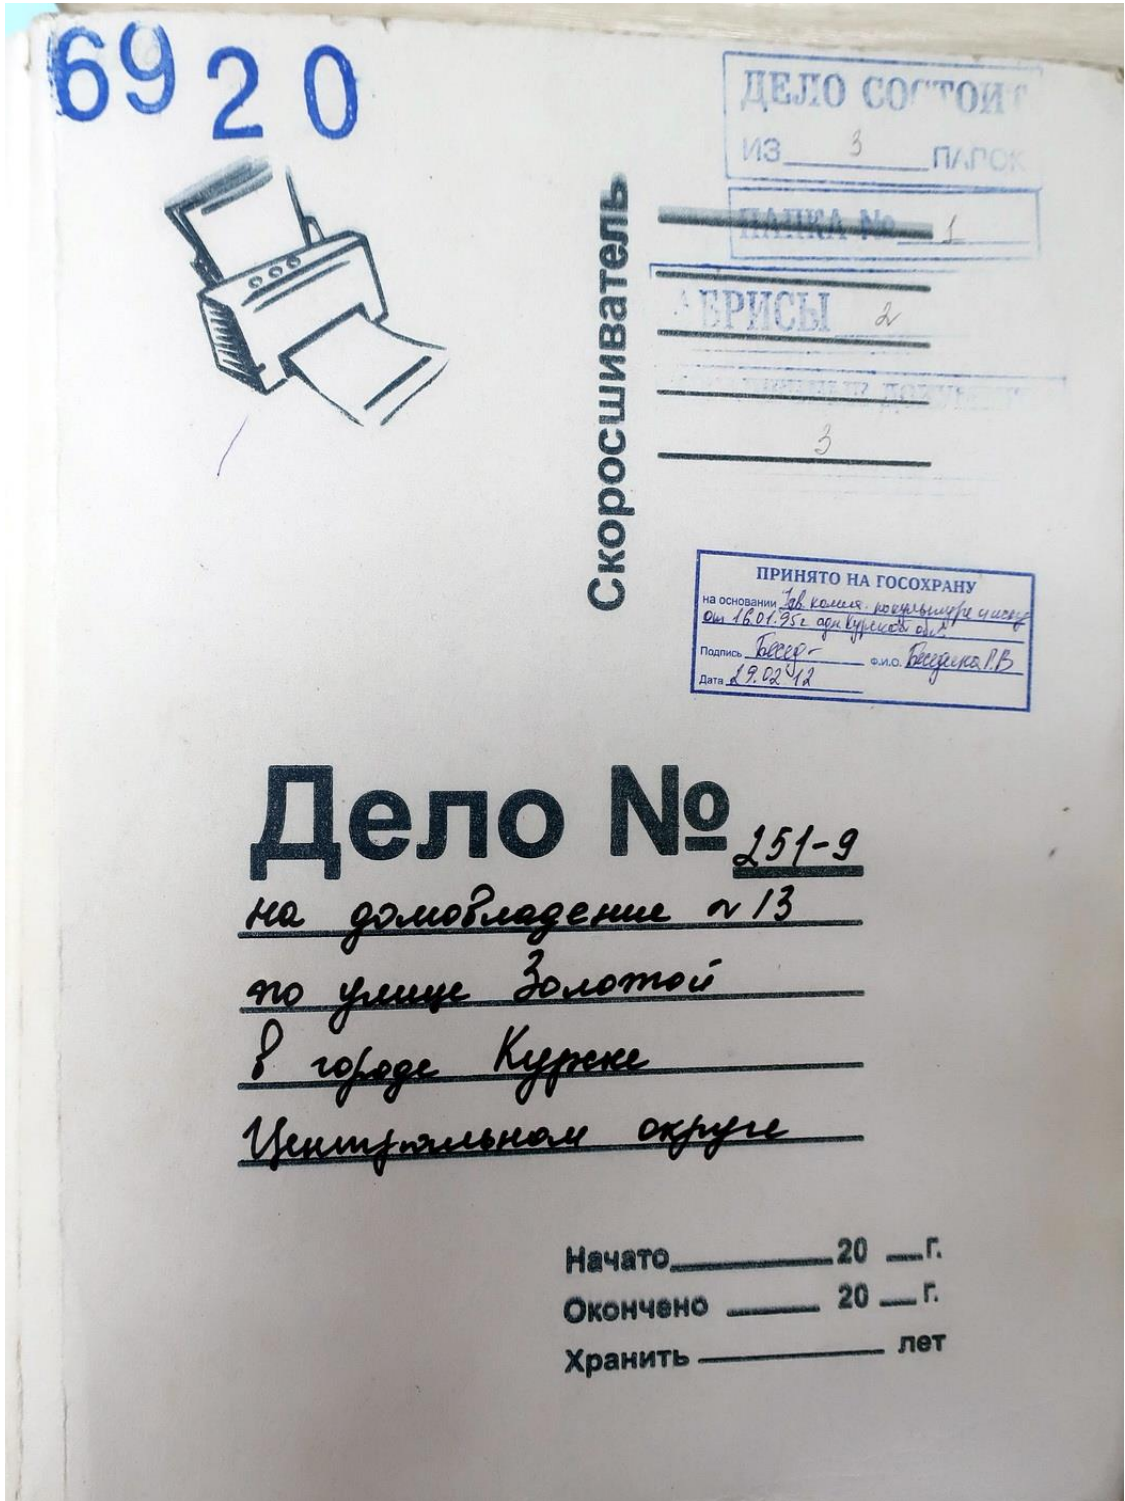 6920
ДЕЛО СОСТОИТ
ИЗ 3 ПАПОК
ПАПКА № 1
АБРИСЫ 2
3
Скоросшиватель
ПРИНЯТО НА ГОСОХРАНУ
на основании
от 16.01.95г адм Курской обл.
Подпись Ф.И.О. Беседина Р.В
Дата 29.02.12
Дело № 251-9
на домовладение № 13
по улице Золотой
в городе Курске
Центральном округе
Начато 20 г.
Окончено 20 г.
Хранить лет